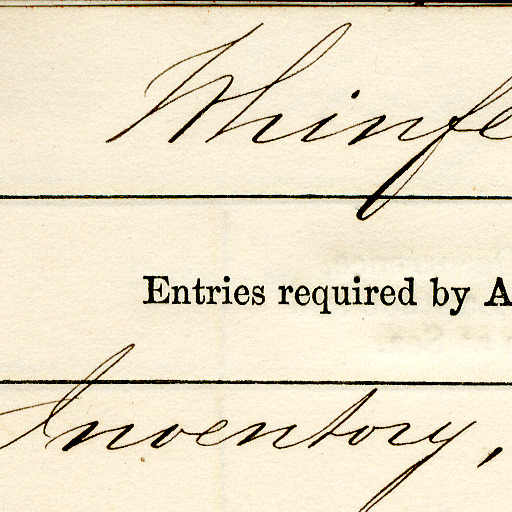 Whinfe
Entries required by A
Inventory,